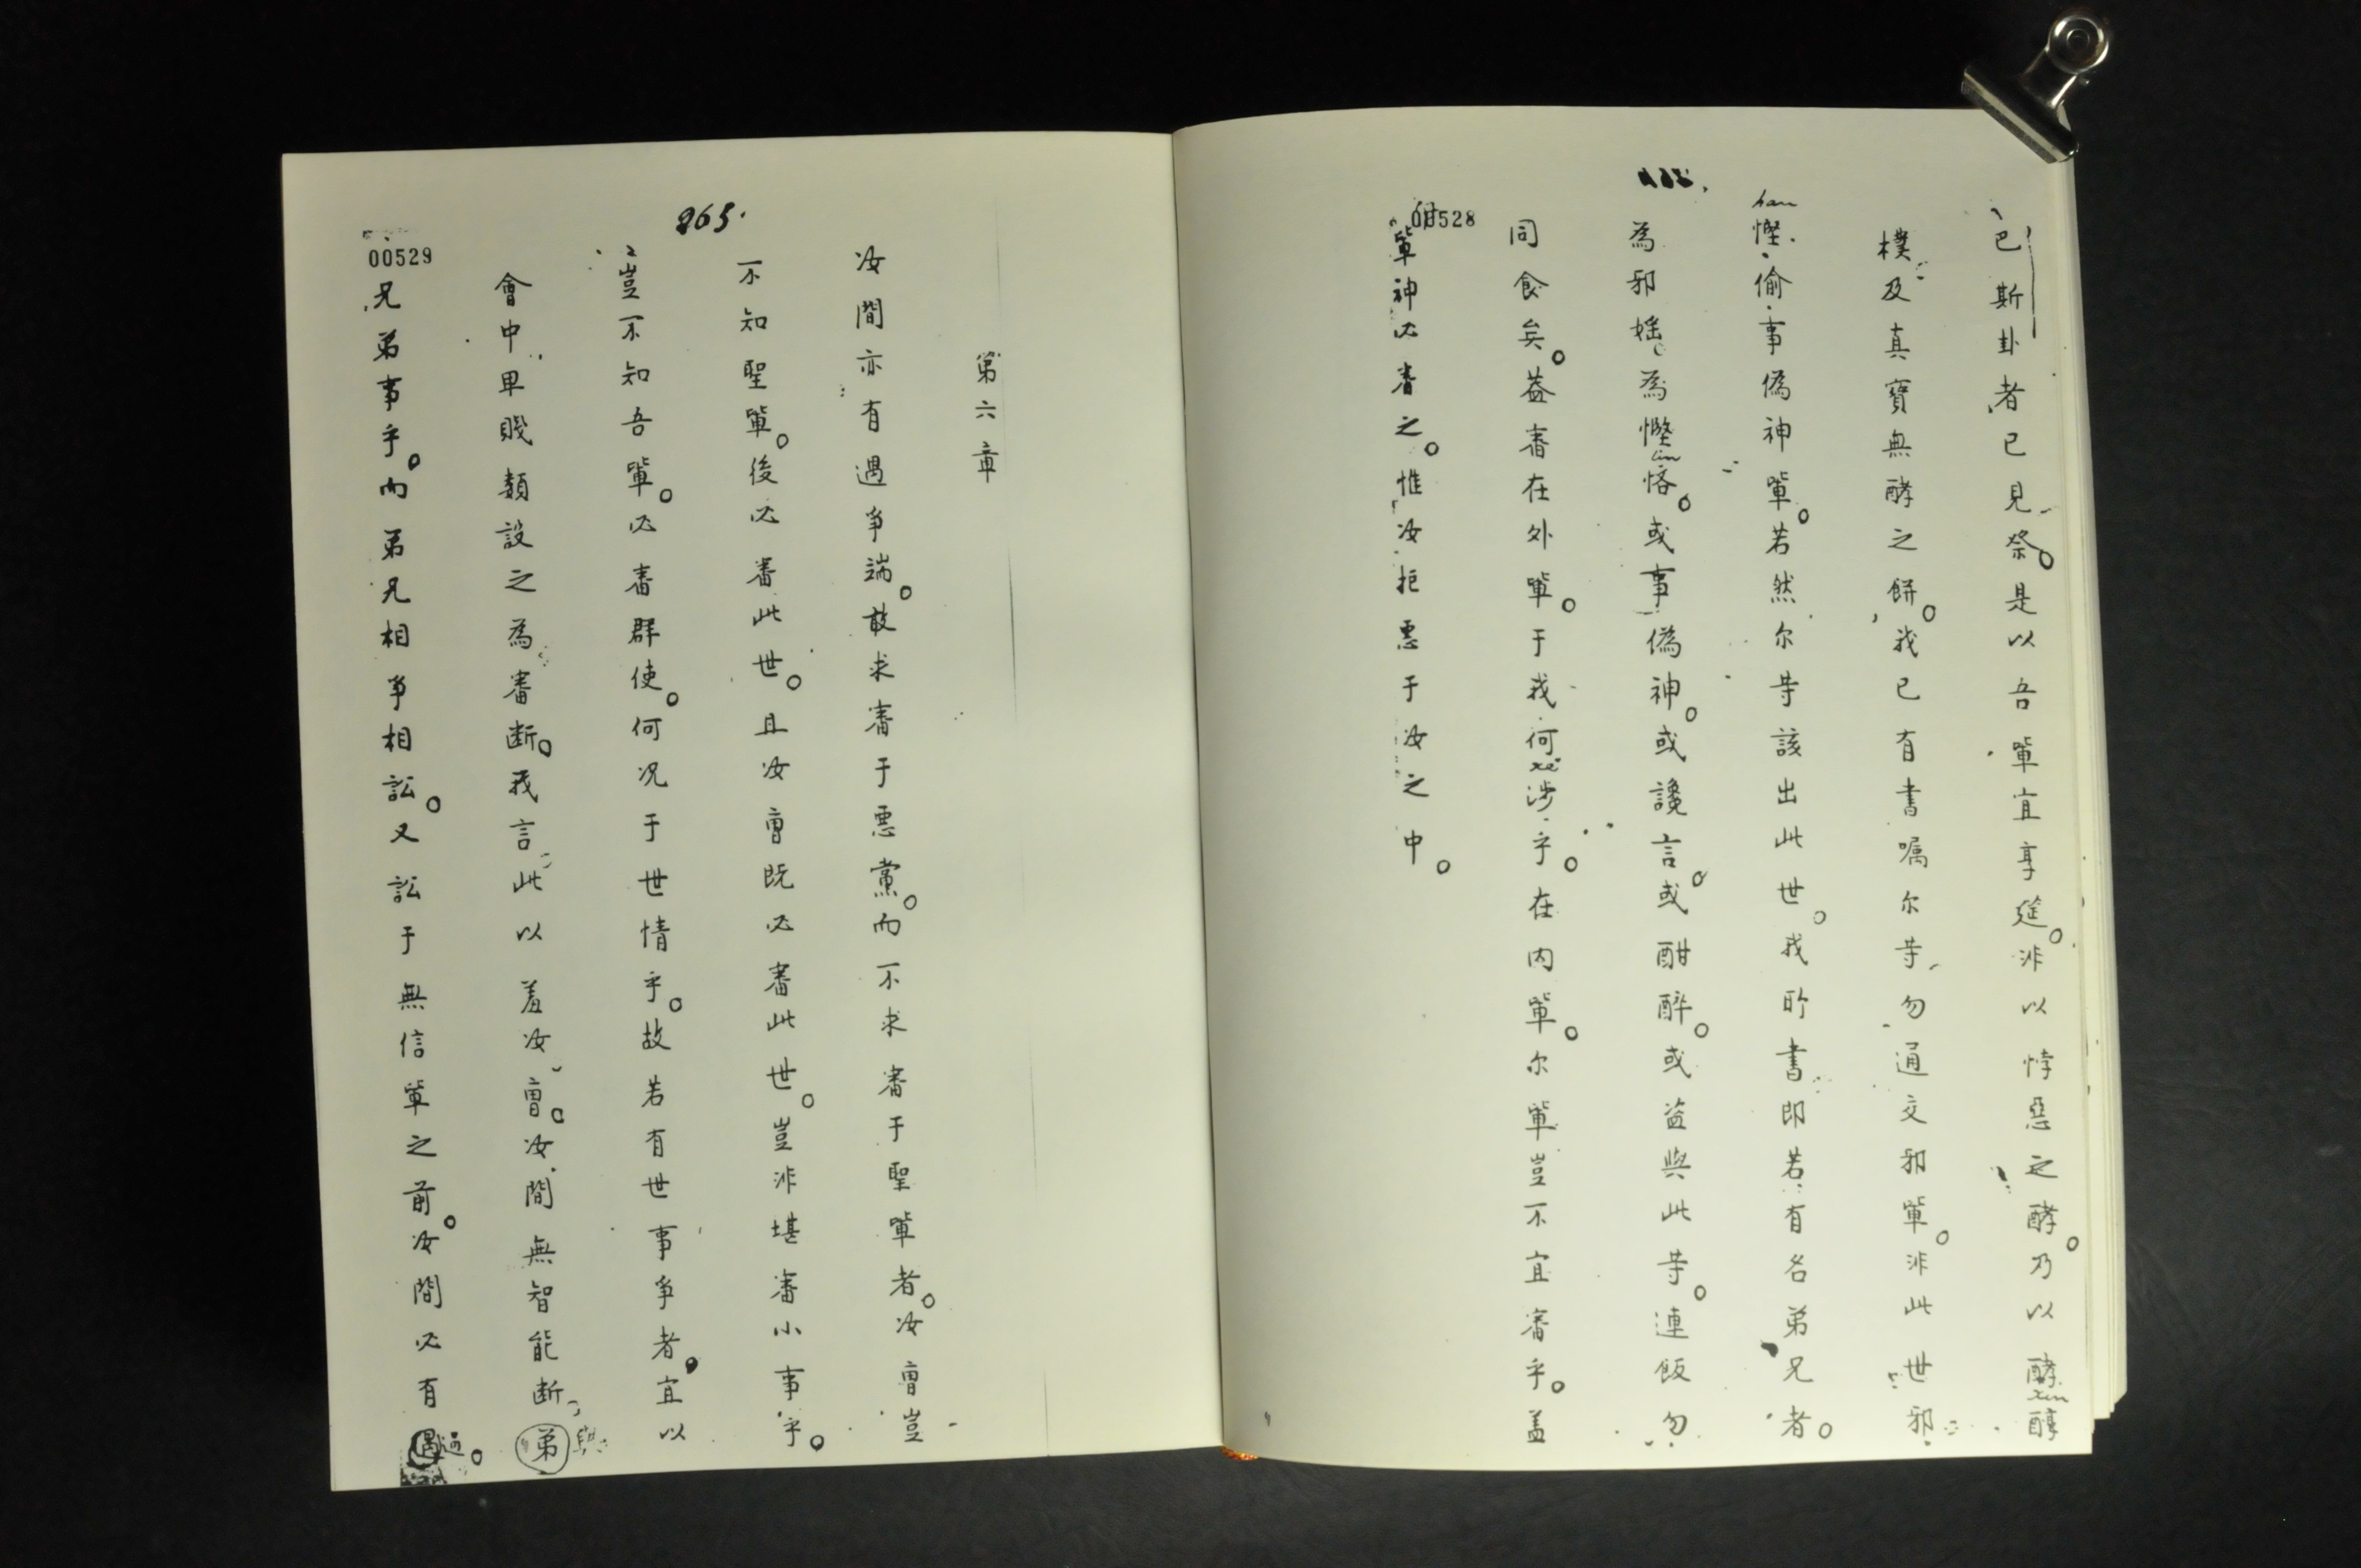 00528
巴斯卦者已見祭。是以吾軰宜享筵。非以悖惡之酵。乃以酵醇
xun
樸及真寶無酵之餅。我已有書嘱尔等勿通交邪軰。非此世邪
han
慳偷事偽神軰。若然尔等該出此世。我所書即若有名弟兄者。
為邪婬。為慳悋。或事偽神。或讒言。或酣醉。或盗與此等。連飯勿
lin
同食矣。葢審在外軰。于我何涉乎。在内軰。尔軰豈不宜審乎。盖
xe
軰神必審之。惟汝拒悪于汝之中。
265.
00529
第六章
汝間亦有遇爭端。敢求審于悪黨。而不求審于聖軰者。汝曹豈
不知聖軰。後必審此世。且汝曹既必審此世。豈非堪審小事乎。
豈不知吾軰。必審群使。何况于世情乎。故若有世事爭者。宜以
會中卑賤類設之為審断。我言此以羞汝曹。汝間無智能断弟
兄弟事乎。而弟兄相爭相訟。又訟于無信軰之前。汝間必有過。